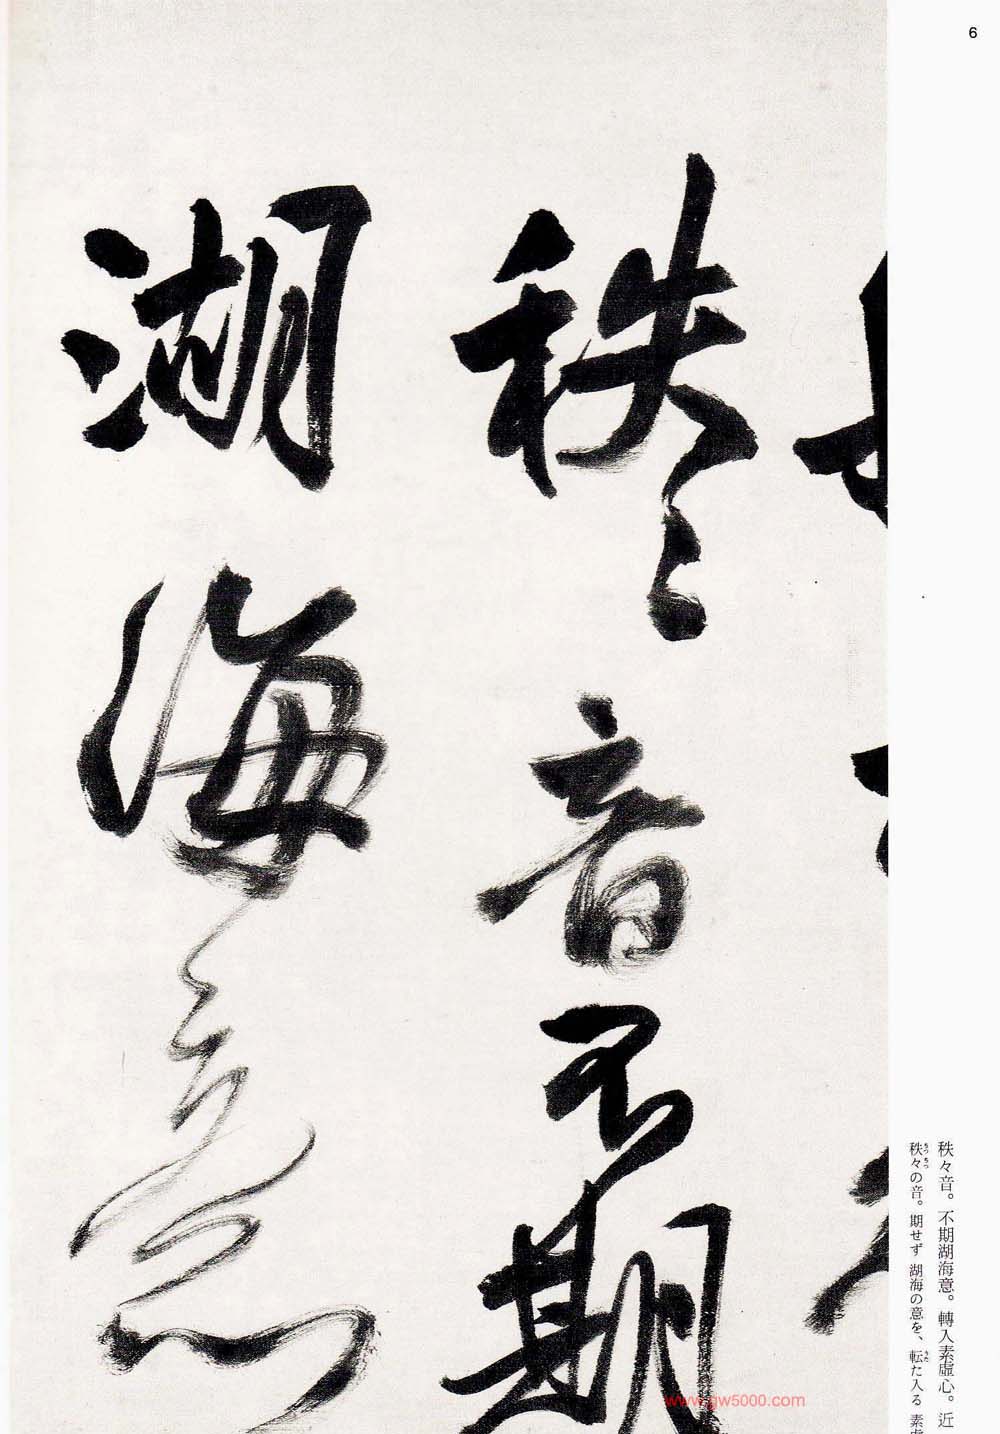 6
秩〻音不期
湖海意
秩々音。不期湖海意。轉入素虛心。近
秩々の音。期せず 湖海の意を、転た入る 素虚
ちつちつ
うた
www.gw5000.com